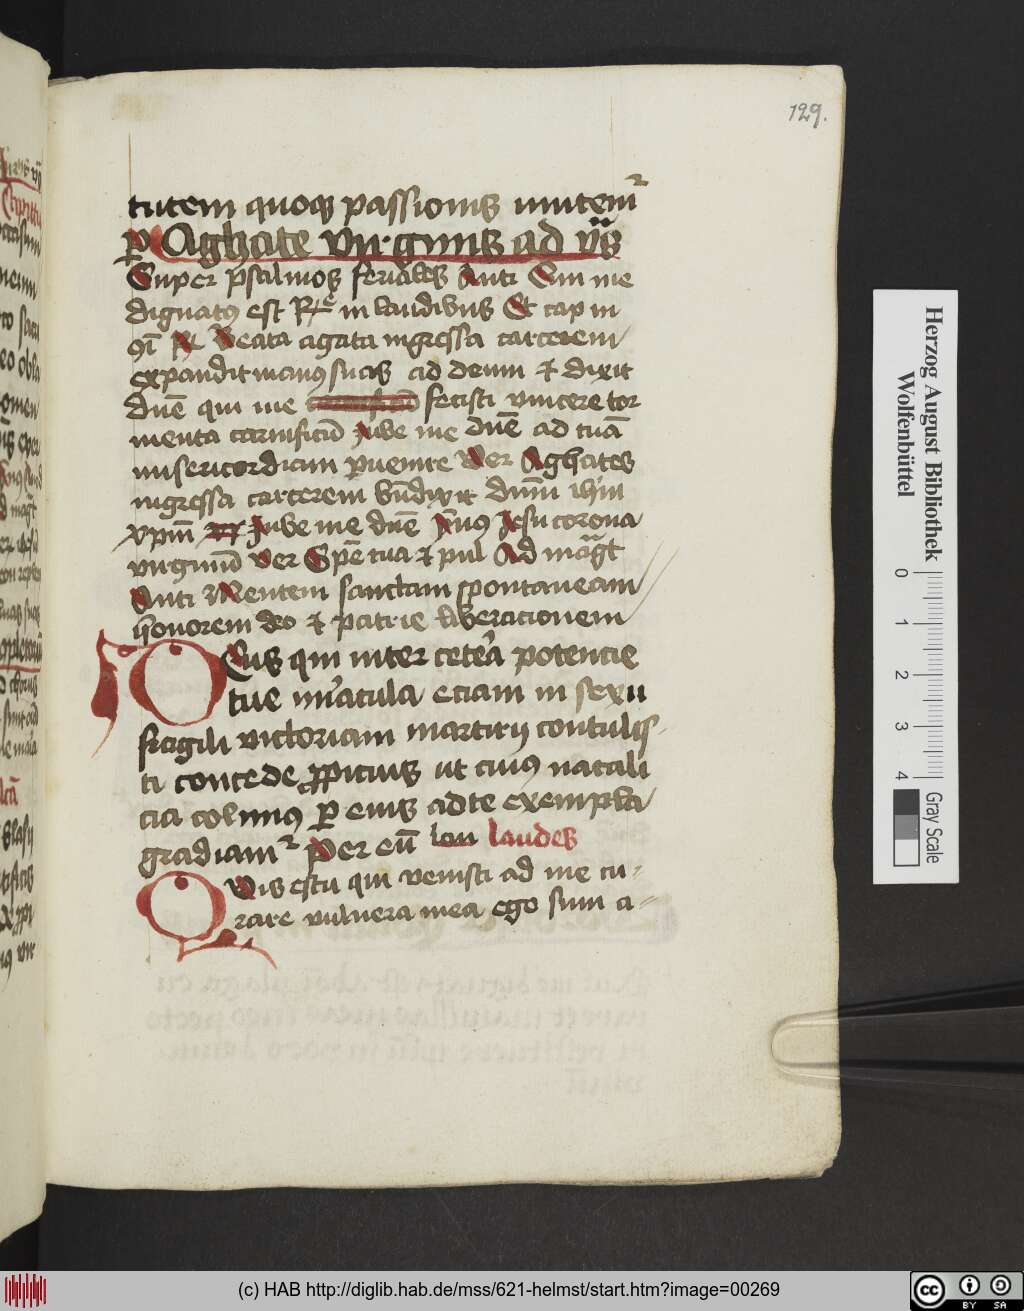 129.
tutem quoqꝫ passionis imitem᷑
ꝑ Aghate virginis ad vꝰs
Super psalmos feriales Anti Qui me
dignatꝰ est Rͤ in laudibus Et cap in
Beata agata ingressa carcerem
expandit manꝰ suas ad deum ⁊ dixit
dn̄e qui me fecisti vincere tor
menta carnificū iube me dn̄e ad tuā
misericordiam ꝑuenire Ver Aghates
ingressa carcerem bn̄dixit dnm̄ ihm̄
xpm̄ Jube me dn̄e Jesu corona
virginū ver Spe tua ⁊ pul Ad mag̅t
Anti Mentem sanctam spontaneam
honorem deo ⁊ patrie liberacionem
Deus qui inter cetera potencie
tue miracula eciam in sexu
fragili victoriam martirij contulis
ti concede ꝓpicius ut cuius natali
cia colimꝰ ꝑ eius ad te exempla
gradiam᷑ Per eū lau laudes
Quis es tu qui venisti ad me cu
rare vulnera mea ego sum a
Herzog August Bibliothek
Wolfenbüttel
0 1 2 3 4
Gray Scale
(c) HAB http://diglib.hab.de/mss/621-helmst/start.htm?image=00269
cc BY SA